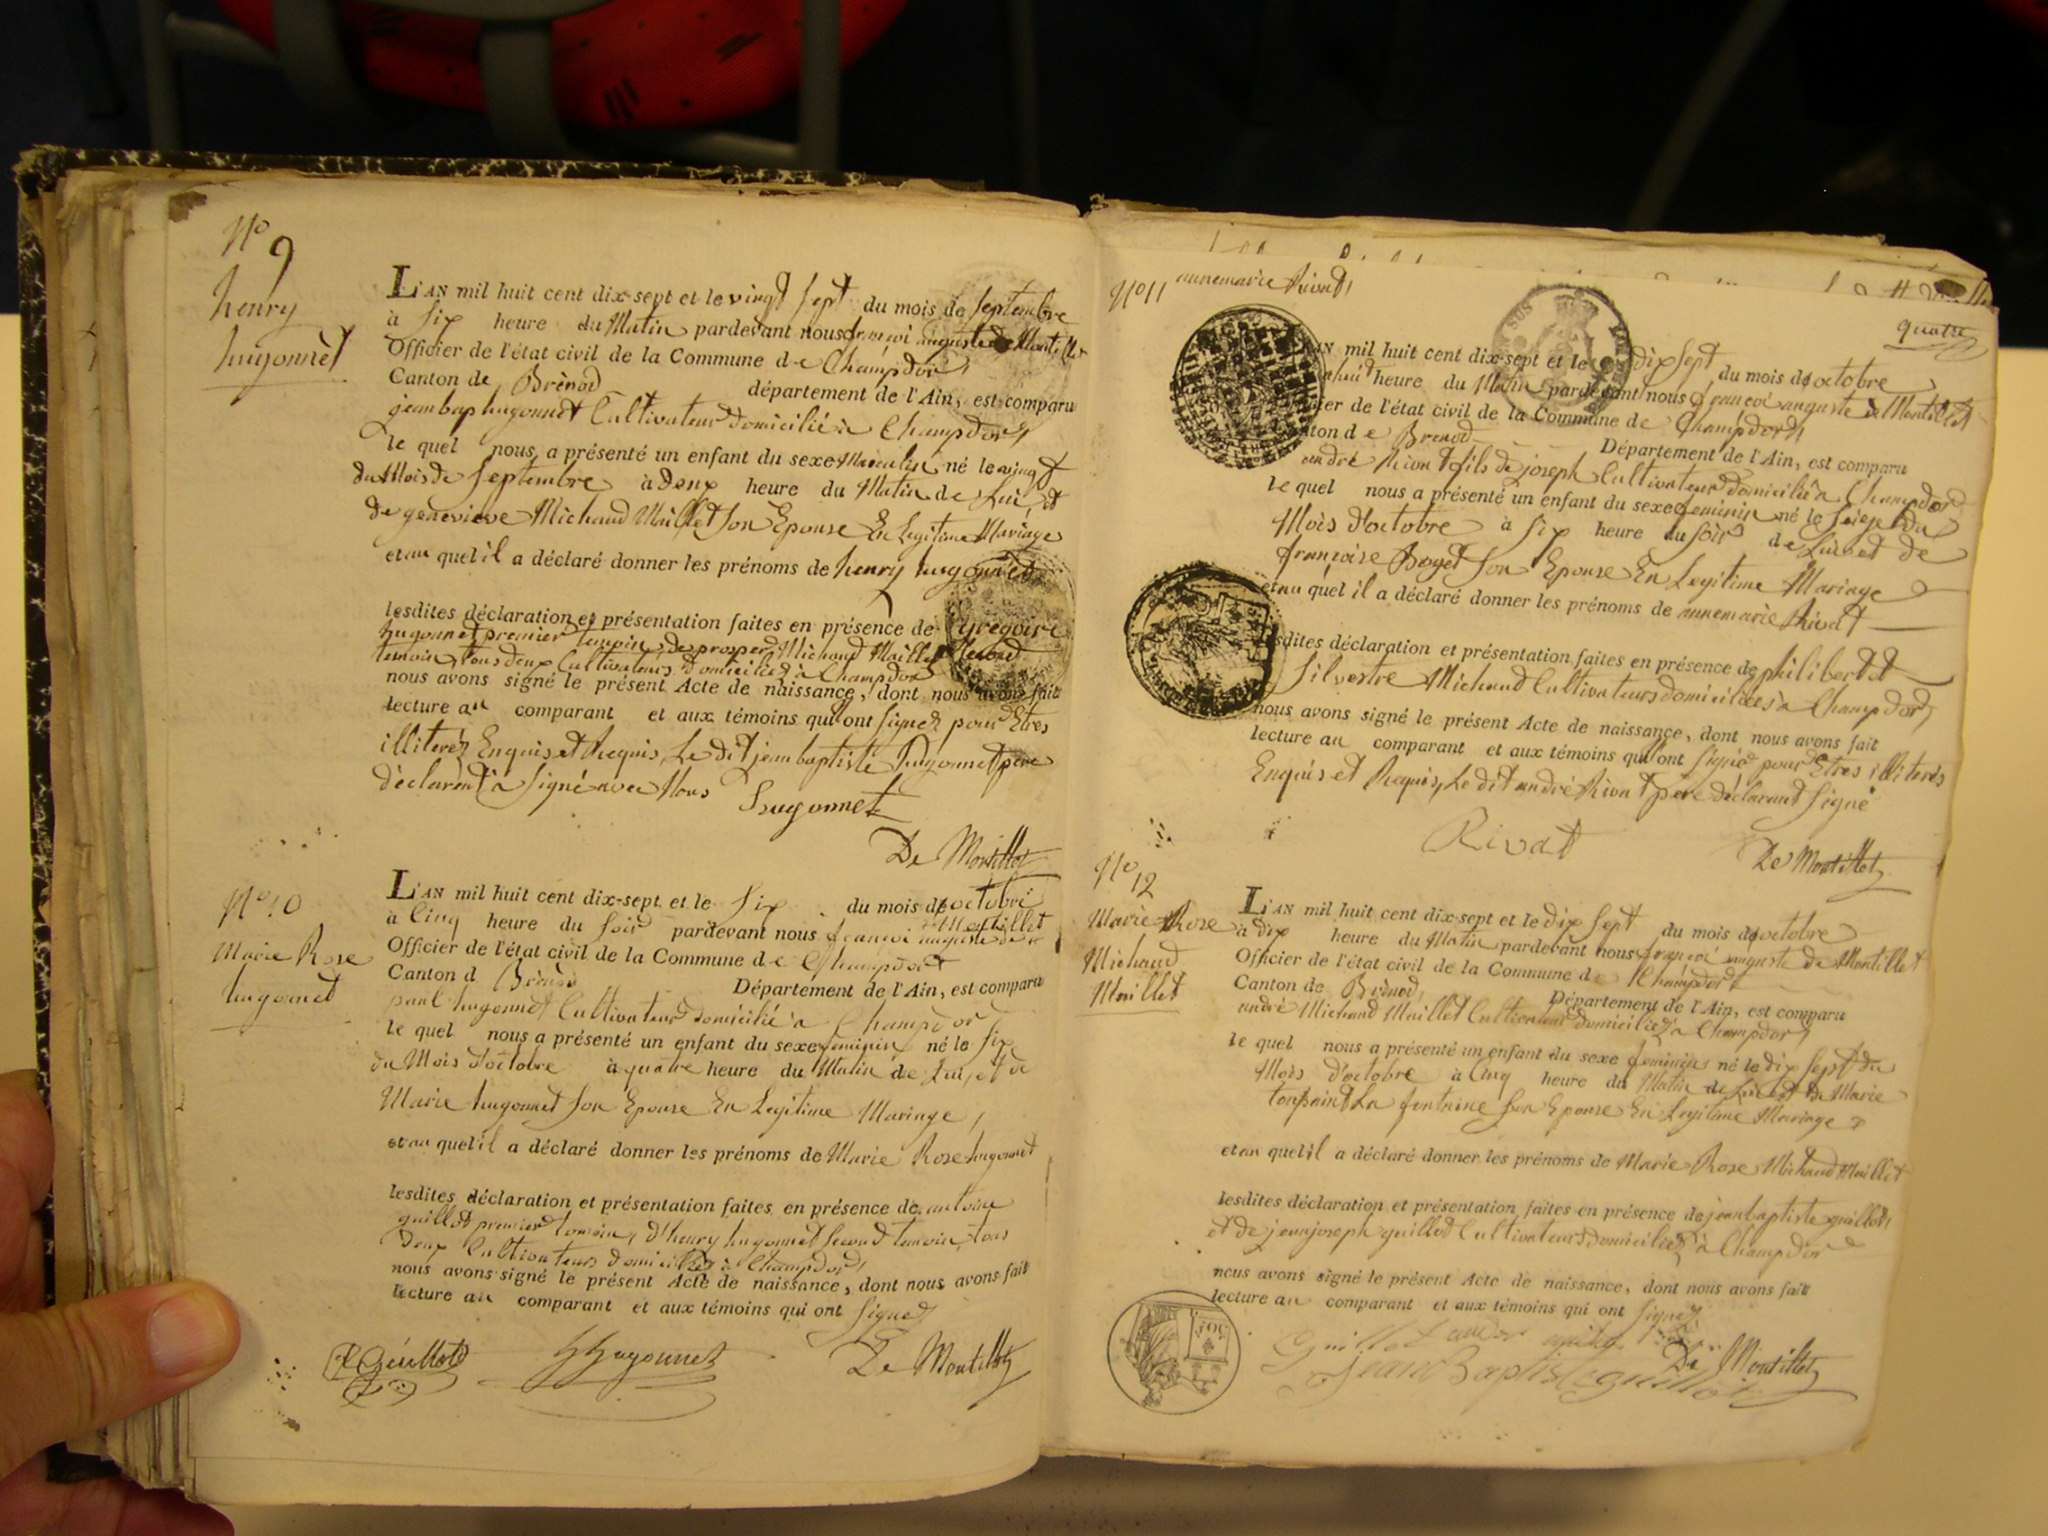 N° 9
henry
hugonnet
L'AN mil huit cent dix-sept et le vingt sept du mois de septembre
à six heure du Matin pardevant nous francoi auguste de Montillet
Officier de l'état civil de la Commune de Champdor,
Canton de Brénod département de l'Ain, est comparu
jean bap hugonnet Cultivateur domicilié à Champdor,
le quel nous a présenté un enfant du sexe Masculin né le vingt
du Mois de Septembre à deux heure du Matin de Lui, et
de genevieve Michaud Maillet son Epouse En Legitime Mariage
et au quel il a déclaré donner les prénoms de henry hugonnet
lesdites déclaration et présentation faites en présence de gregoire
hugonnet premier temoin, de prosper Michaud Maillet second
temoin, tous deux Cultivateurs domiciliés à Champdor
nous avons signé le présent Acte de naissance, dont nous avons fait
lecture au comparant et aux témoins qui ont signer pour Etres
illiterés Enquis et Requis, Le dit jean baptiste hugonnet père
déclarent à signé avec Nous
hugonnet
De Montillet
N° 10
Marie Rose
hugonnet
L'AN mil huit cent dix-sept et le six du mois d'octobre
à Cinq heure du soir pardevant nous francoi auguste de Montillet
Officier de l'état civil de la Commune de Champdor
Canton d Brénod Département de l'Ain, est comparu
paul hugonnet Cultivateur domicilié à Champdor
le quel nous a présenté un enfant du sexe feminin né le six
du Mois d'octobre à quatre heure du Matin de Lui, et de
Marie hugonnet son Epouse En Legitime Mariage,
et au quel il a déclaré donner les prénoms de Marie Rose hugonnet
lesdites déclaration et présentation faites en présence de antoine
guillot premier temoin, d'henry hugonnet second temoin, tous
deux Cultivateurs domiciliés à Champdor,
nous avons signé le présent Acte de naissance, dont nous avons fait
lecture au comparant et aux témoins qui ont signer
Guillot
hugonnet
De Montillet
N° 11 annemarie Rivat,
quatre
AN mil huit cent dix-sept et le dix sept du mois d'octobre
heure du Matin pardevant nous francoi auguste de Montillet
er de l'état civil de la Commune de Champdor,
ton de Brenod Département de l'Ain, est comparu
andré Rivat fils de joseph Cultivateur domicilié à Champdor
le quel nous a présenté un enfant du sexe feminin né le seize du
Mois d'octobre à six heure du soir de Lui et de
françoise Boget son Epouse En Legitime Mariage
et au quel il a déclaré donner les prénoms de annemarie Rivat
lesdites déclaration et présentation faites en présence de philibert et
silvestre Michaud Cultivateurs domiciliés à Champdor,
nous avons signé le présent Acte de naissance, dont nous avons fait
lecture au comparant et aux témoins qui ont signé pour Etres illiterés
Enquis et Requis, Le dit andré Rivat père déclarant signé
Rivat
De Montillet
N° 12
Marie Rose
Michaud
Maillet
L'AN mil huit cent dix-sept et le dix sept du mois d'octobre
à dix heure du Matin pardevant nous francoi auguste de Montillet
Officier de l'état civil de la Commune de Champdor
Canton de Brénod, Département de l'Ain, est comparu
andré Michaud Maillet Cultivateur domicilié à Champdor,
le quel nous a présenté un enfant du sexe feminin né le dix sept du
Mois d'octobre à Cinq heure du Matin de Lui et de Marie
toussaint La fontaine son Epouse En Legitime Mariage
et au quel il a déclaré donner les prénoms de Marie Rose Michaud Maillet
lesdites déclaration et présentation faites en présence de jean baptiste guillot,
et de jean joseph guillot Cultivateurs domiciliés à Champdor
nous avons signé le présent Acte de naissance, dont nous avons fait
lecture au comparant et aux témoins qui ont signer
Guillot
Jean Baptiste guillot
De Montillet